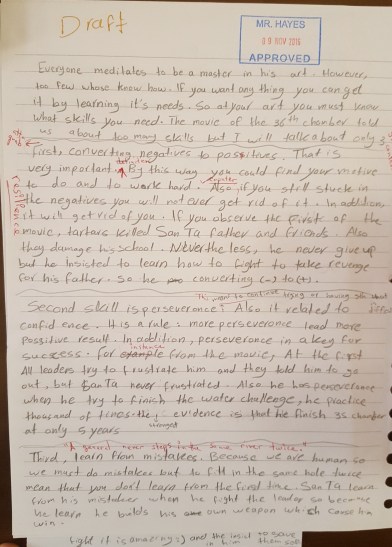 Draft
MR. HAYES
09 NOV 2016
APPROVED
Everyone meditates to be a master in his art. However,
too few whose know how. If you want any thing you can get
it by learning it's needs. So at your art you must know
what skills you need. The movie of the 36th chamber told
us about too many skills but I will talk about only 3
First, converting negatives to possitives. That is
very important. By this way you could find your motive
to do and to work hard. Also, if you still stuck in
the negatives you will not ever get rid of it. In addition,
it will get rid of you. If you observe the first of the
movie, tartars killed San Ta father and friends. Also
they damage his school. Never the less, he never give up
but he insisted to learn how to fight to take revenge
for his father. So he converting (-) to (+).
Second skill is perseverance. Also it related to
confidence. It is a rule: more perseverance lead more
possitive result. In addition, perseverance is a key for
success. For instance from the movie, At the first
All leaders try to frustrate him and they told him to go
out, but San Ta never frustrated. Also he has perseverance
when he try to finish the water challenge, he practice
thousand of times. evidence is that he finish 35 chamber
at only 5 years
"A general never steps into the same river twice."
Third, learn from mistakes. Because we are human so
we must do mistakes but to fill in the same hole twice
mean that you don't learn from the first time. San Ta learn
from his mistakes when he fight the leader so because
he learn he builds his own weapon which cause him
win.
fight it is amazing :) and the